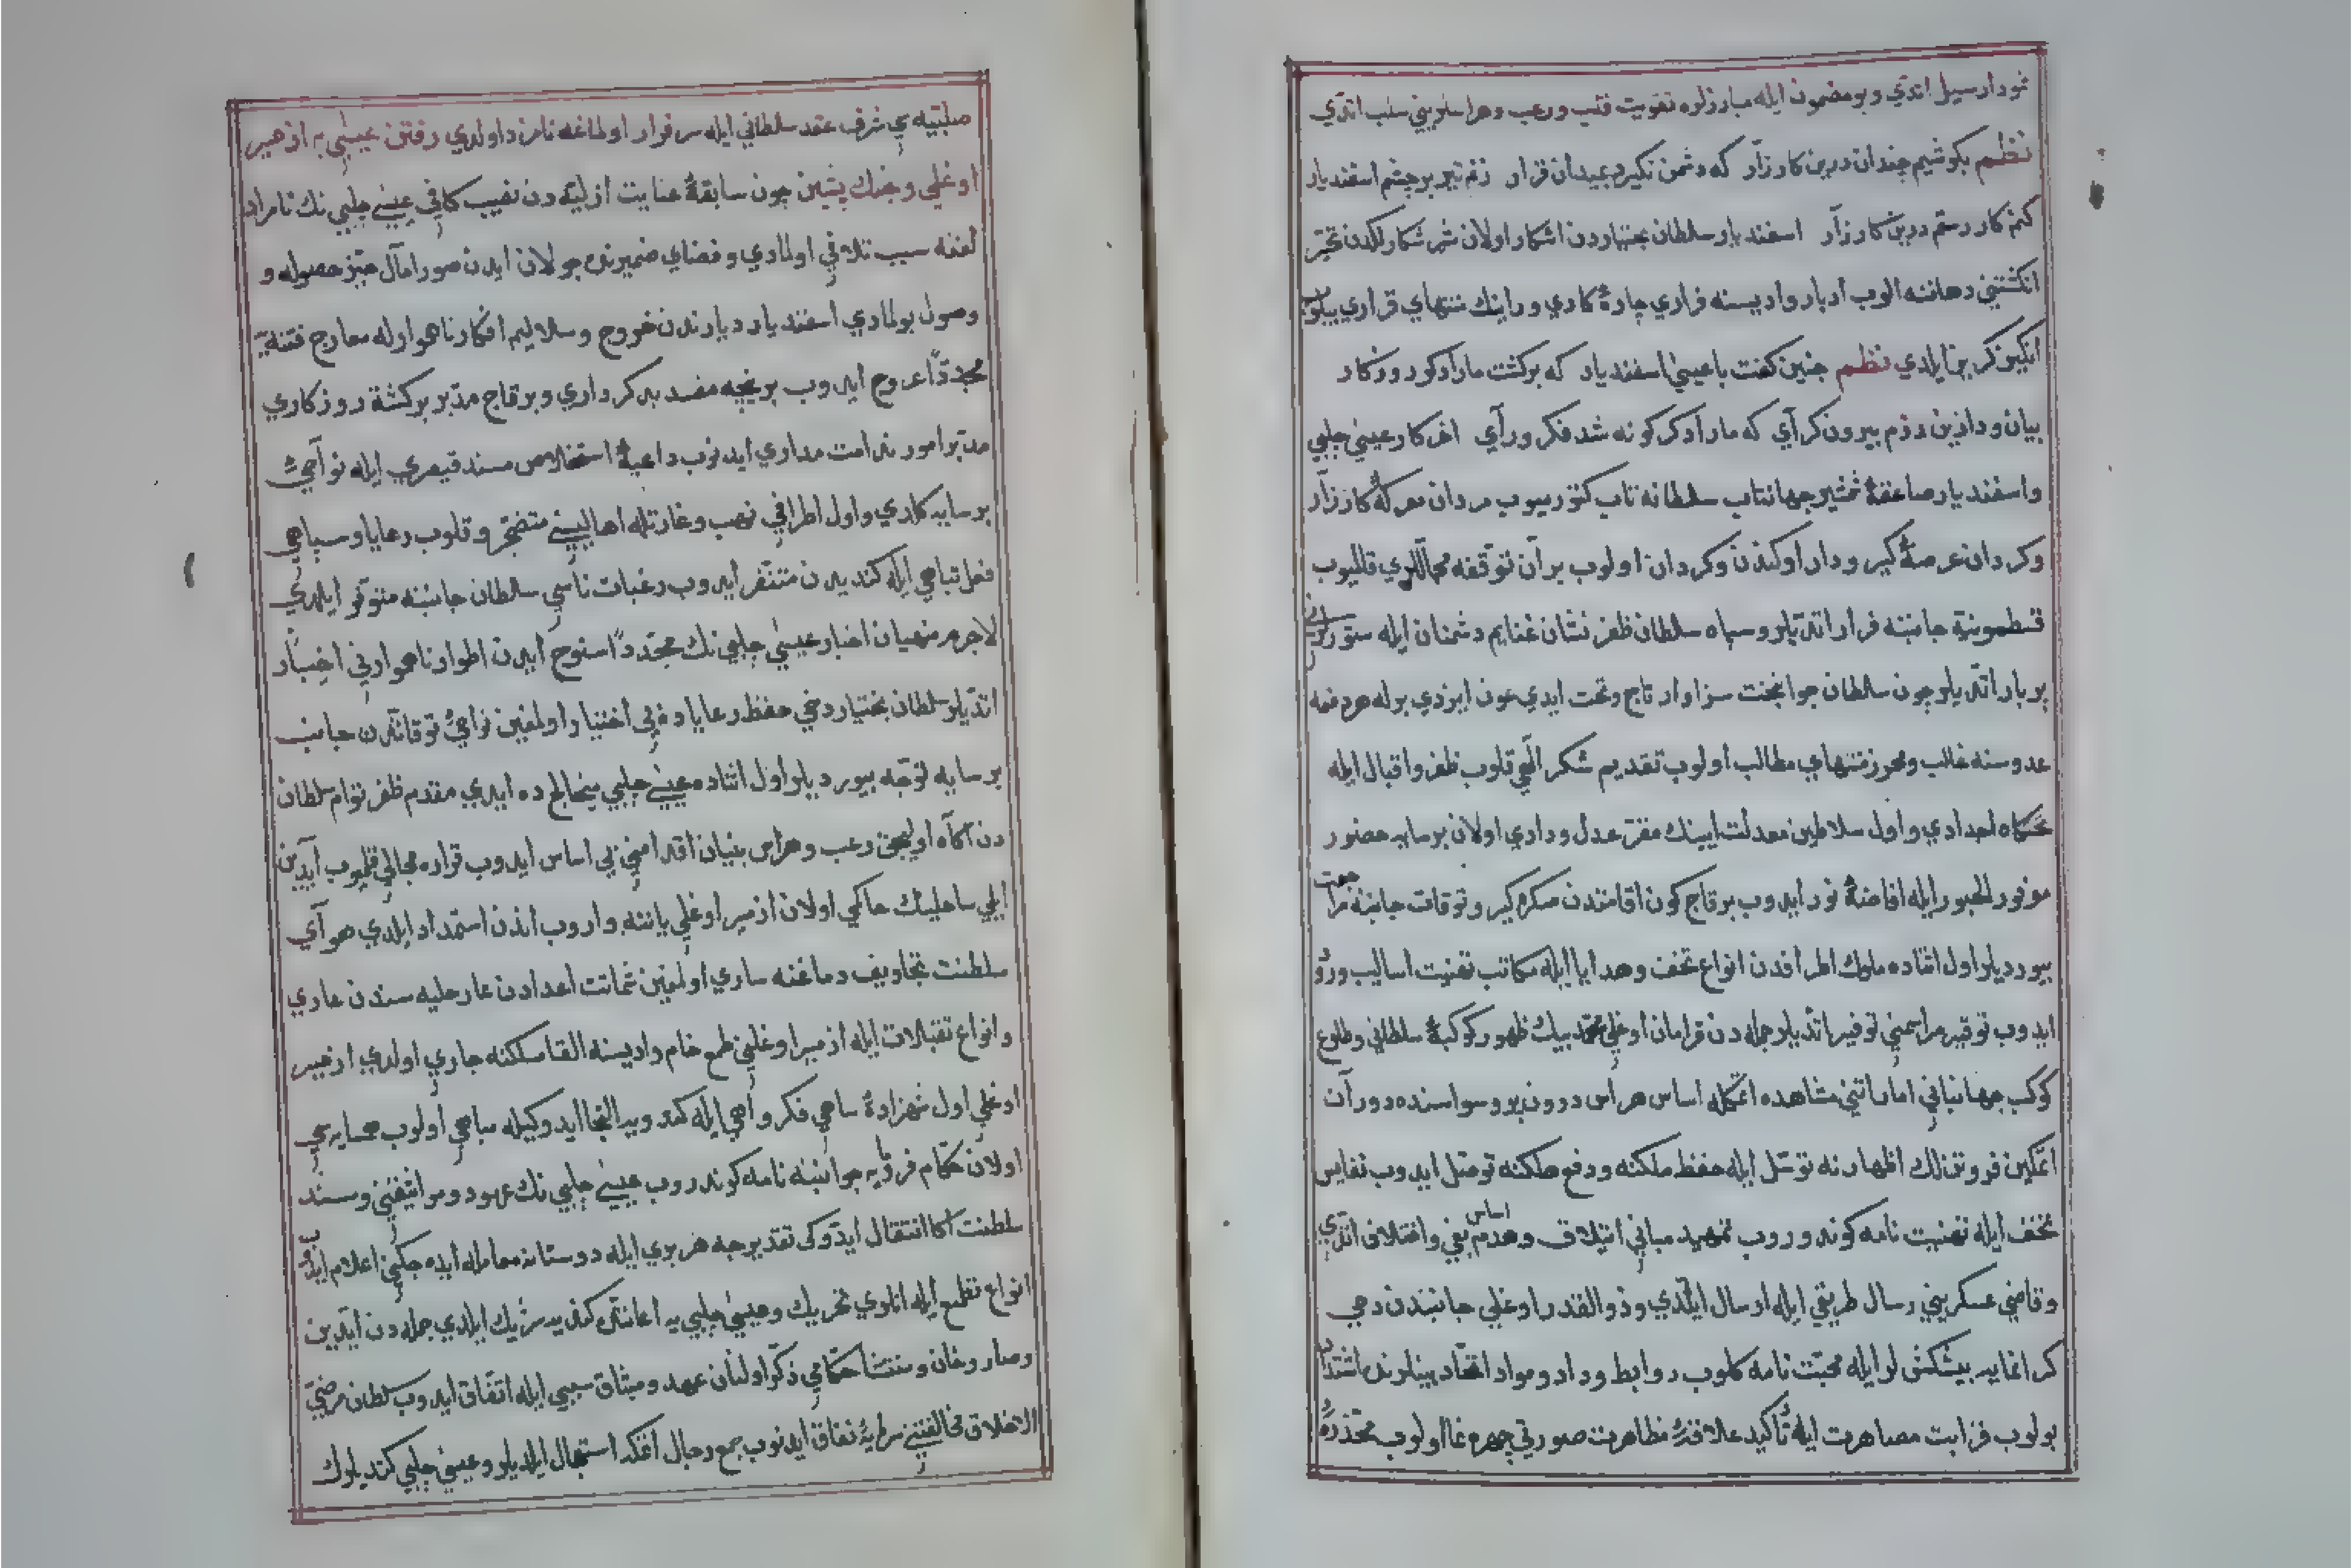 نمودار سیل اتدی و بو مضمون ایله مبارزلره تقویت قلب و رعب و هراسلرینی سلب اتدی
نظم بکوشیم چندان درین کارزار که دشمن نکیرد بمیدان قرار زنم تیر بر چشم اسفندیار
کنم کار رستم درین کارزار اسفندیار سلطان بختیاردن اشکار اولان شیر شکارلقدن تحیر
انکشتنی دهاننه الوب ادبار وادیسنه فراری چارهٔ کاری و راینك منتهای قراری بیلوب
نظم چنین کفت با عیسی اسفندیار که برکشت مارا دکر روزکار
بیان و دازین رزم بیرون کرای که مارا دکر کونه شد فکر و رای اخر کار عیسی چلبی
و اسفندیار صاعقهٔ شمشیر جهانتاب سلطانه تاب کتورمیوب مردان معرکهٔ کارزار
و کردان عرصهٔ کیر و دار اوکندن وکردان اولوب بر آن توقفه مجاللری قالمیوب
قسطمونیه جانبنه فرار اتدیلر و سپاه سلطان ظفر نشان غنایم دشمنان ایله ستورلرنی
پربار اتدیلر چون سلطان جوانبخت سزاوار تاج و تخت ایدی عون ایزدی برله هر دفعه
عدوسنه غالب و محرز منتهای مطالب اولوب تقدیم شکر الهی قلوب ظفر و اقبال ایله
تختکاه اجدادی و اول سلاطین معدلت ایینك مقر عدل و دادی اولان برسایه حضور
موفور الحبور ایله افاضهٔ نور ایدوب برقاج کون اقامتدن صکره کیرو توقات جانبنه مراجعت
بیوردیلر اول اثناده ملوك اطرافدن انواع تحف و هدایا ایله مکاتب تهنیت اسالیب ورود
ایدوب توقیر مراسمنی توفیر اتدیلر جمله دن قرامان اوغلی محمد بیك ظهور کوکبهٔ سلطانی و طلوع
کوکب جهانبانی اماراتنی مشاهده اتمکله اساس هراس درون پر وسواسنده دوران
اتمکین فروتنلك اظهارنه توسل ایله حفظ ملکنه و دفع هلکنه توصل ایدوب نفایس
تحف ایله تهنیت نامه کوندروب تمهید مبانی ائتلاف و هدم اساس بغی و اختلاف اتدی
و قاضی عسکرینی رسال طریقی ایله ارسال ایلدی و ذوالقدر اوغلی جانبندن دخی
کرانمایه پیشکشلر ایله محبت نامه کلوب روابط وداد و مواد اتحاد بینلرنده اشتداد
بولوب قرابت مصاهرت ایله تاکید علاقهٔ مظاهرت صورتی چهره نما اولوب مخدرهٔ
صلبیه سی شرف عقد سلطانی ایله سرفراز اولماغه نامزد اولدی رفتن عیسی به ازمیر
اوغلی و جنك پشین چون سابقهٔ عنایت ازلیه دن نصیب کافی عیسی چلبی نك نامراد
لغنه سبب تلافی اولمادی و فضای ضمیرنده جولان ایدن صور امال حیز حصوله و
وصول بولمادی اسفندیار دیارندن خروج و سلالیم افکار ناهموار له معارج فتنه یه
مجددا عروج ایدوب برنیجه مفسد بد کرداری و برقاج مدبر برکشته روزکاری
مدبر امور ندامت مداری ایدنوب داعیهٔ استخلاص مسند قیصری ایله نواحی
برسایه کلدی و اول اطرافی نهب و غارتله اهالیسنی متضجر و قلوب رعایا و سپاهی
فعل تباهی ایله کندیدن متنفر ایدوب رغبات ناسی سلطان جانبنه متوفر ایلدی
لاجرم منهیان اخبار عیسی چلبی نك مجددا سنوح ایدن اطوار ناهموارنی اخبار
اتدیلر سلطان بختیار دخی حفظ رعایاده بی اختیار اولمغین نواحی توقاتدن جانب
برسایه توجه بیوردیلر اول اثناده عیسی چلبی میخالجده ایدی مقدم ظفر توام سلطان
دن اکاه اولیجق رعب و هراس بنیان اقدامنی بی اساس ایدوب قراره مجالی قلمیوب ایدین
ایلی ساحلینك حاکمی اولان ازمیر اوغلی یاننه واروب اندن استمداد ایلدی هوای
سلطنت تجاویف دماغنه ساری اولمغین شماتت اعدادن عار حلیه سندن عاری
و انواع تقبلات ایله ازمیر اوغلنی طمع خام وادیسنه القا مسلکنه جاری اولدی ازمیر
اوغلی اول شهزادهٔ ساهی فکر واهی ایله کندویه التجا ایدوکیله مباهی اولوب همسایه سی
اولان حکام فرومایه جوانبنه نامه کوندروب عیسی چلبی نك عهود و مواثیقنی و مسند
سلطنت اکا انتقال ایدوکی تقدیرجه هر بری ایله دوستانه معامله ایده جکنی اعلام ایدوب
انواع تطمیع ایله انلری تحریك و عیسی چلبی یه اعانتده کندویه شریك ایلدی جمله دن ایدین
و صاروخان و منتشا حکامی ذکر اولنان عهد و میثاق سببی ایله اتفاق ایدوب سلطان مرضی
الاخلاق مخالفتنی سرمایهٔ نفاق ایدنوب جمع رجال اتمکه استعجال ایلدیلر و عیسی چلبی کندیلرك